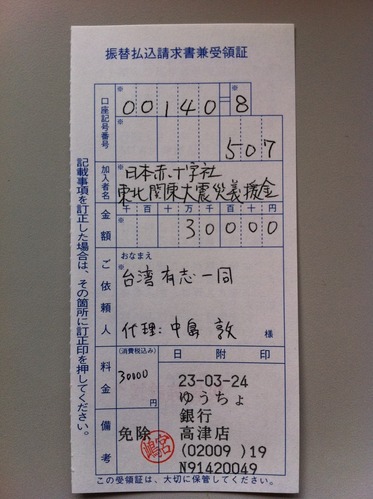 振替払込請求書兼受領証
口座記号番号
※ 00140-8
※ 507
加入者名
※ 日本赤十字社
東北関東大震災義援金
金額
千 百 十 万 千 百 十 円
※ 30000
ご依頼人
おなまえ
※ 台湾有志一同
代理:中島 敦 様
料金
(消費税込み)
30000
円
備考
免除
日附印
23-03-24
ゆうちょ
銀行
高津店
(02009 )19
N91420049
この受領証は、大切に保管してください。
記載事項を訂正した場合は、その箇所に訂正印を押してください。